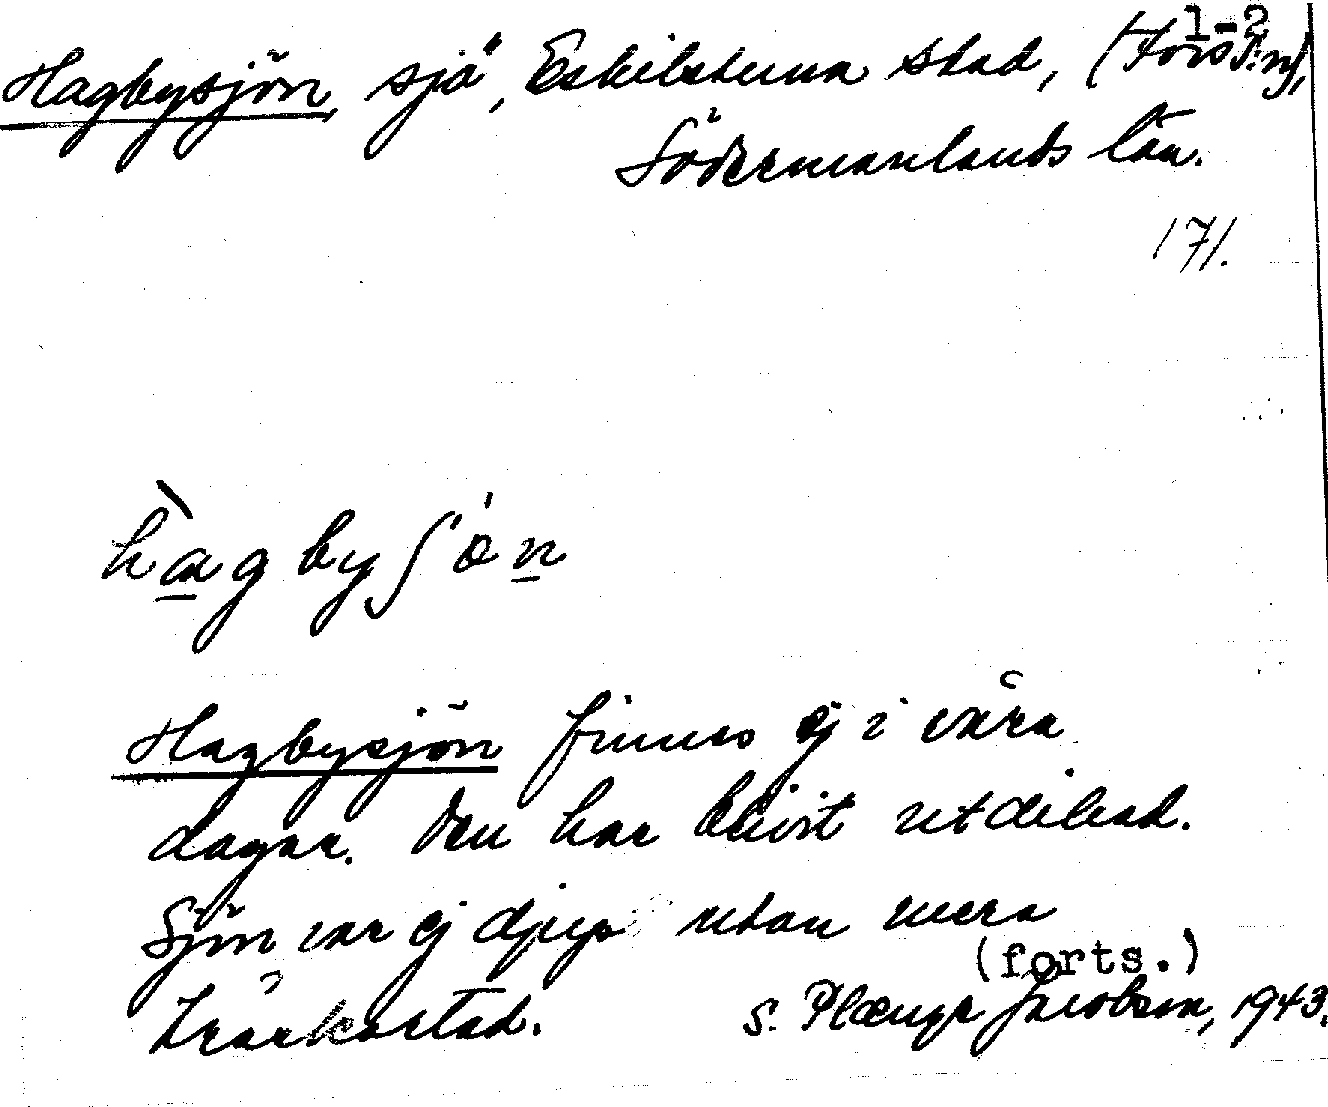 1-2
Hagbysjön, sjö, Eskilstuna stad, (Fors s:n),
Södermanlands län.
171.
hàgbyʃǿn
Hagbysjön finnes ej i våra
dagar. Den har blivit utdikad.
Sjön var ej djup utan mera
träskartad.
(forts.)
S. Plænge Jacobson, 1943.